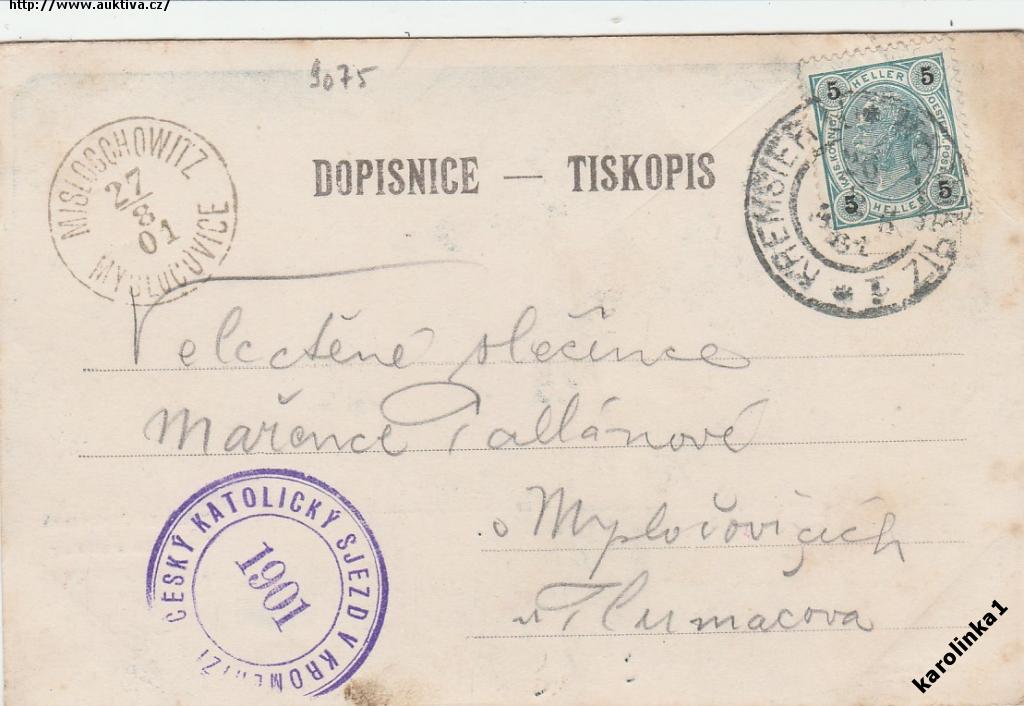 http://www.auktiva.cz/
9075
DOPISNICE — TISKOPIS
MISLOSCHOWITZ
27/8
01
MYSLOCOVICE
KREMSIER
1
5 HELLER 5
5 HELLER 5
Velectěné slečince
Mařence Tallánové
v Mysločovicích
u Tlumačova
ČESKÝ KATOLICKÝ SJEZD V KROMĚŘÍŽI
1901
karolinka1